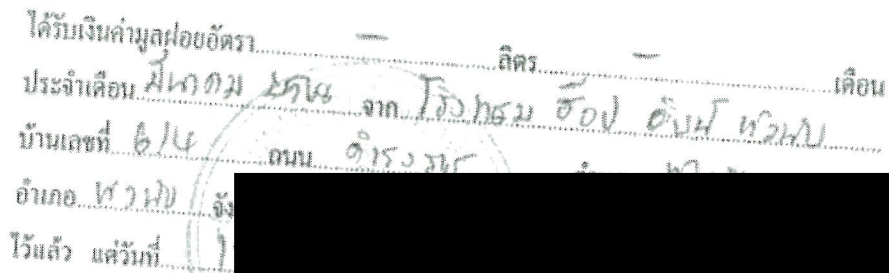 ได้รับเงินค่ามูลฝอยอัตรา – ลิตร – เดือน
ประจำเดือน มีนาคม จาก โรงแรม ฮ็อป อินน์ หัวหิน
บ้านเลขที่ 6/4 ถนน ดำรงราช
อำเภอ หัวหิน จัง
ไว้แล้ว แต่วันที่ 1